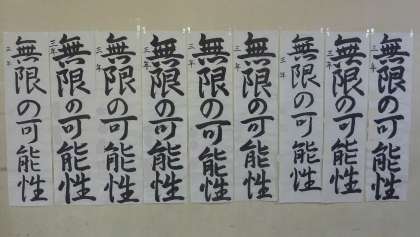 無限の可能性
三年
無限の可能性
三年
無限の可能性
三年
無限の可能性
三年
無限の可能性
三年
無限の可能性
三年
無限の可能性
三年
無限の可能性
三年
無限の可能性
三年